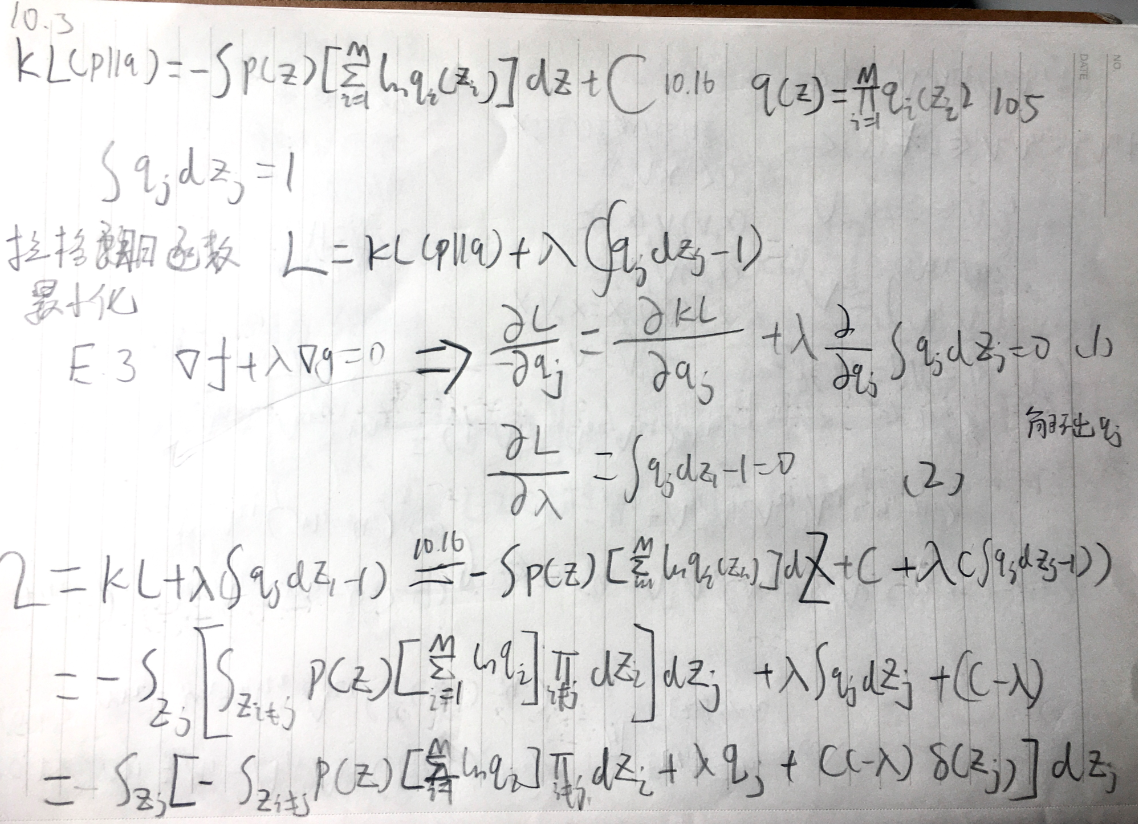 10.3
KL(p||q)=-∫p(z)[∑_{i=1}^{M} ln q_i(z_i)]dz+C 10.16 q(z)=∏_{i=1}^{M} q_i(z_i) 10.5
∫q_j dz_j=1
拉格朗日函数 L=KL(p||q)+λ(∫q_j dz_j-1)
最小化
E.3 ∇f+λ∇g=0 ⇒ ∂L/∂q_j = ∂KL/∂q_j + λ ∂/∂q_j ∫q_j dz_j=0 (1)
解出 q_j
∂L/∂λ =∫q_j dz_j-1=0 (2)
L=KL+λ(∫q_j dz_j-1) =^{10.16} -∫p(z)[∑_{i=1}^{M} ln q_i(z_i)]dz+C+λ(∫q_j dz_j-1))
=-∫_{z_j}[∫_{z_{i≠j}} p(z)[∑_{i=1}^{M} ln q_i]∏_{i≠j} dz_i]dz_j +λ∫q_j dz_j+(C-λ)
=∫_{z_j}[-∫_{z_{i≠j}} p(z)[∑_{i=1}^{M} ln q_i]∏_{i≠j} dz_i+λq_j+(C-λ)δ(z_j)]dz_j
NO
DATE